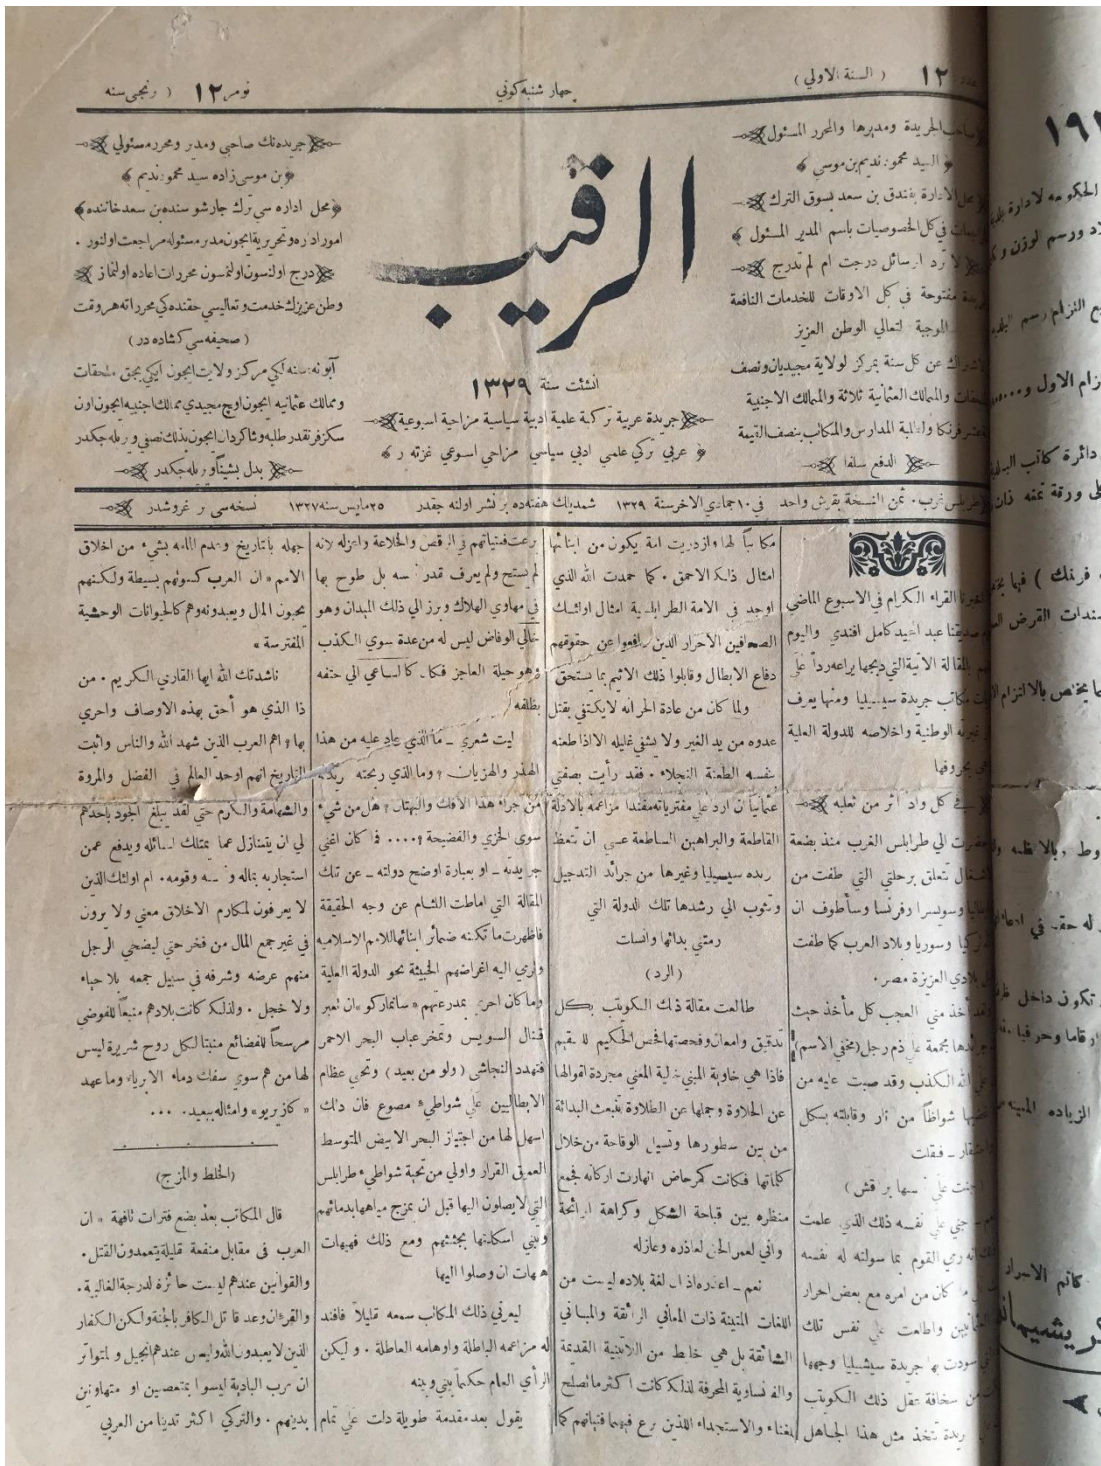 ١٢ (السنة الاولي)
چهار شنبه كوني
نومر ١٢ (رنجي سنه
صاحب الجريدة ومديرها والمحرر المسئول
السيد محمود نديم بن موسي
محل الادارة بفندق بن سعد بسوق الترك
في كل الخصوصيات باسم المدير المسئول
لا ترد الرسائل درجت ام لم تدرج
مفتوحة في كل الاوقات للخدمات النافعة
الموجبة لتعالي الوطن العزيز
عن كل سنة بمركز لولاية مجيديان ونصف
والممالك العثمانية ثلاثة والممالك الاجنبية
فرنكا ولطلبة المدارس والمكاتب بنصف القيمة
الدفع سلفا
الرقيب
انشئت سنة ١٣٢٩
جريدة عربية تركية علمية ادبية سياسية مزاحية اسبوعية
عربي تركي علمي ادبي سياسي مزاحي اسبوعي غزته در
جريده نك صاحبي ومدير ومحرر مسئولي
بن موسي زاده سيد محمود نديم
محل اداره سي ترك چارشوسنده بن سعد خاننده
امور اداره وتحريرية ايچون مدير مسئوله مراجعت اولنور .
درج اولنسون اولنمسون محررات اعاده اولنماز
وطن عزيزك خدمت وتعاليسي حقنده كي محرراته هروقت
(صحيفه سي كشاده در)
آبونه سنه لكي مركز ولايت ايچون ايكي بچق ملحقات
وممالك عثمانيه ايچون اوچ مجيدي ممالك اجنبيه ايچون اون
سكز فرنقدر طلبه وشاكردان ايچون بدلك نصفي ويريله جكدر
بدل پشيناً ويريله جكدر
طرابلس غرب . ثمن النسخة بقرش واحد في ١٠ جمادي الاخر سنة ١٣٢٩ شمديلك هفته ده بر نشر اولنه جقدر ٢٥ مايس سنه ١٣٢٧ نسخه سي بر غروشدر
القراء الكرام في الاسبوع الماضي
صديقنا عبد الحميد كامل افندي واليوم
بالمقالة الاتية التي دبجها يراعه رداً علي
مكاتب جريدة سيسيليا ومنها يعرف
غيرته الوطنية واخلاصه للدولة العلية
بحروفها
في كل واد اثر من ثعلبه
حضرت الي طرابلس الغرب منذ بضعة
تتعلق برحلتي التي طفت من
وسويسرا وفرنسا وسأطوف ان
وسوريا وبلاد العرب كما طفت
بلادي العزيزة مصر .
أخذ مني العجب كل مأخذ حيث
مجمعة علي ذم رجل (مخفي الاسم)
الله الكذب وقد صبت عليه من
شواظاً من نار وقابلته بسكل
فقلت
علي نفسها براقش)
جني علي نفسه ذلك الذي علمت
القوم بما سولته له نفسه
ما كان من امره مع بعض احرار
واطلعت علي نفس تلك
سودت بها جريدة سيشيليا وجهها
من سخافة عقل ذلك الكويتب
تتخذ مثل هذا الجاهل
مكاتباً لها وازدريت امة يكون من ابنائها
امثال ذلك الاحمق . كما حمدت الله الذي
اوجد في الامة الطرابلسية امثال اولئك
الصحافين الاحرار الذين دافعوا عن حقوقهم
دفاع الابطال وقابلوا ذلك الاثيم بما يستحق
ولما كان من عادة الحر انه لا يكتفي بقتل
عدوه من يد الغير ولا يشفي غليله الا اذا طعنه
نفسه الطعنة النجلاء . فقد رأيت بصفتي
عثمانياً ان ارد علي مفترياته مفندا مزاعمه بالادلة
القاطعة والبراهين الساطعة عسي ان تتعظ
سيسيليا وغيرها من جرائد التدجيل
وتثوب الي رشدها تلك الدولة التي
رمتني بدائها وانسلت
(الرد)
طالعت مقالة ذلك الكويتب بكل
تدقيق وامعان وفحصتها فحص الحكيم للسقيم
فاذا هي خاوية المبني خالية المعني مجردة اقوالها
عن الحلاوة وجملها عن الطلاوة تنبعث البذائة
من بين سطورها وتسيل الوقاحة من خلال
كلماتها فكانت كمرحاض انهارت اركانه فجمع
منظره بين قباحة الشكل وكراهة الرائحة
واني لعمر الحق لعاذره وعازله
نعم ـ اعذره اذ ان لغة بلاده ليست من
اللغات المتينة ذات المعاني الرائقة والمباني
الشائقة بل هي خلط من اللاتينية القديمة
والفنساوية المحرفة لذلك كانت اكثر ما تصلح
للغناء والاستجداء اللذين برع فيهما فتيانهم كما
برعت فتياتهم في الرقص والخلاعة واعزله لانه
لم يستح ولم يعرف قدر نفسه بل طوح بها
في مهاوي الهلاك وبرز الي ذلك الميدان وهو
خالي الوفاض ليس له من عدة سوي الكذب
وهو حيلة العاجز فكان كالساعي الي حتفه
بظلفه
ليت شعري ـ ما الذي عاد عليه من هذا
الهذر والهزيان ؟ وما الذي ربحته
من جراء هذا الافك والبهتان ؟ هل من شيء
سوي الخزي والفضيحة ؟ .... فما كان اغني
جريدته ـ او بعبارة اوضح دولته ـ عن تلك
المقالة التي اماطت اللثام عن وجه الحقيقة
فاظهرت ما تكنه ضمائر ابنائها للامم الاسلامية
وترمي اليه اغراضهم الخبيثة نحو الدولة العلية
وما كان احري بمدرعتهم «ساتماركو» ان تعبر
قنال السويس وتمخر عباب البحر الاحمر
فتهدد النجاشي (ولو من بعيد) وتحيي عظام
الابطاليين علي شواطيء مصوع فان ذلك
اسهل لها من اجتياز البحر الابيض المتوسط
العميق القرار واولي من تحية شواطيء طرابلس
التي لا يصلون اليها قبل ان يمزج مياهها بدمائهم
وتبني اسكلتها بجثثهم ومع ذلك فهيهات
هيهات ان وصلوا اليها
ليعرني ذلك المكاتب سمعه قليلاً فافند
له مزاعمه الباطلة واوهامه العاطلة . وليكن
الرأي العام حكماً بيني وبينه
يقول بعد مقدمة طويلة دلت علي تمام
جهله بالتاريخ وعدم المامه بشيء من اخلاق
الامم « ان العرب كسوتهم بسيطة ولكنهم
يحبون المال ويعبدونه وهم كالحيوانات الوحشية
المفترسة »
ناشدتك الله ايها القاري الكريم . من
ذا الذي هو أحق بهذه الاوصاف واحري
بها ؟ اهم العرب الذين شهد الله والناس واثبت
التاريخ انهم اوحد العالم في الفضل والمروة
والشهامة والكرم حتي لقد يبلغ الجود باحدهم
لي ان يتنازل عما يمتلك لسائله ويدفع عمن
استجار به بماله ونفسه وقومه . ام اولئك الذين
لا يعرفون لمكارم الاخلاق معني ولا يرون
في غير جمع المال من فخر حتي ليضحي الرجل
منهم عرضه وشرفه في سبيل جمعه بلا حياء
ولا خجل . ولذلك كانت بلادهم منبعاً للفوضي
مرسحاً للفضائع منبتا لكل روح شريرة ليس
لها من هم سوي سفك دماء الابرياء وما عهد
« كازيريو » وامثاله ببعيد . ...
(الخلط والمزج)
قال المكاتب بعد بضع فترات تافهة « ان
العرب في مقابل منفعة قليلة يتعمدون القتل .
والقوانين عندهم ليست حائزة لدرجة الغالبية .
والقرءان وعد قاتل الكافر بالجنة ولكن الكفار
الذين لا يعبدون الله وليس عندهم انجيل ولمتواتر
ان عرب البادية ليسوا بمتعصبين او متهاونين
بدينهم . والتركي اكثر تدينا من العربي
١٩١
الحكومه لادارة
ورسم الوزن و
التزام رسم البلديه
الاول و
دائرة كاتب
ورقة تمغه
فرنك ) فيها
سندات القرض
يختص بالالتزام
له حق في
تكون داخل
ارقاما وحرفيا
الزياده
كاتم الاسرار